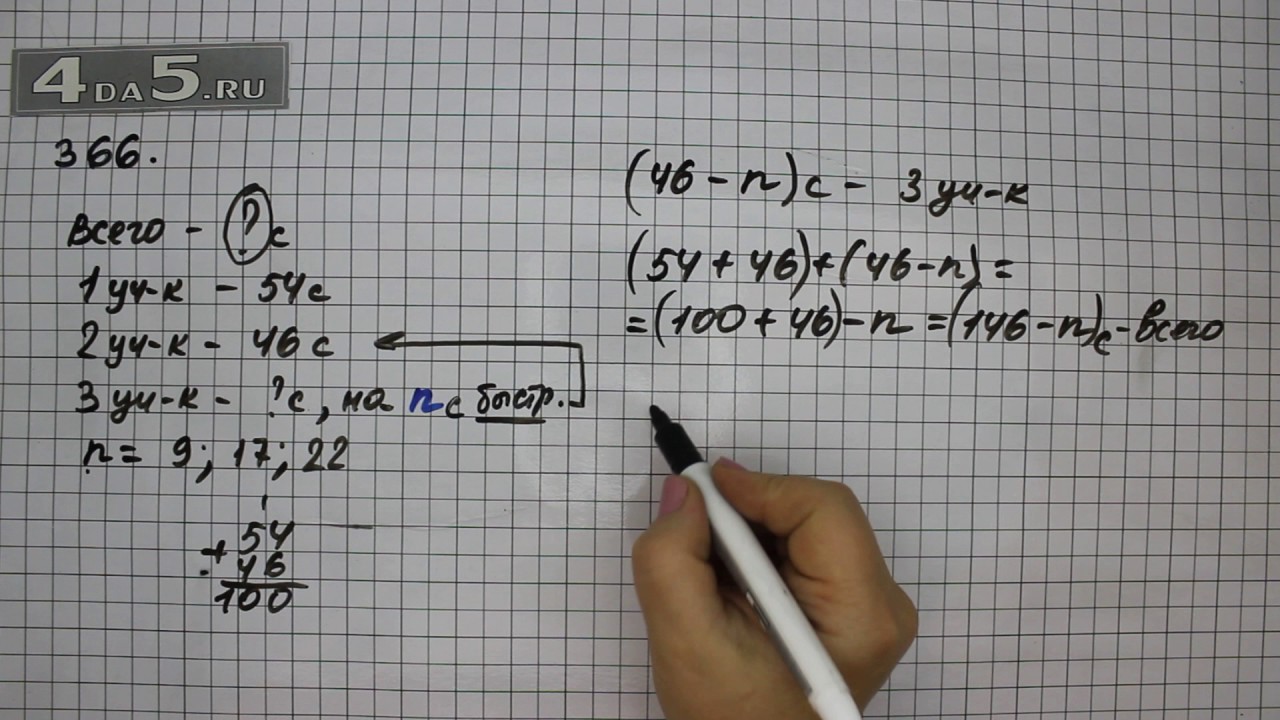 4DA5.RU
366.
Всего - ? с
1 уч-к - 54 с
2 уч-к - 46 с
3 уч-к - ? с, на n с быстр.
n = 9; 17; 22
1
54
+
46
100
(46 - n) с - 3 уч-к
(54 + 46) + (46 - n) =
= (100 + 46) - n = (146 - n) с - всего